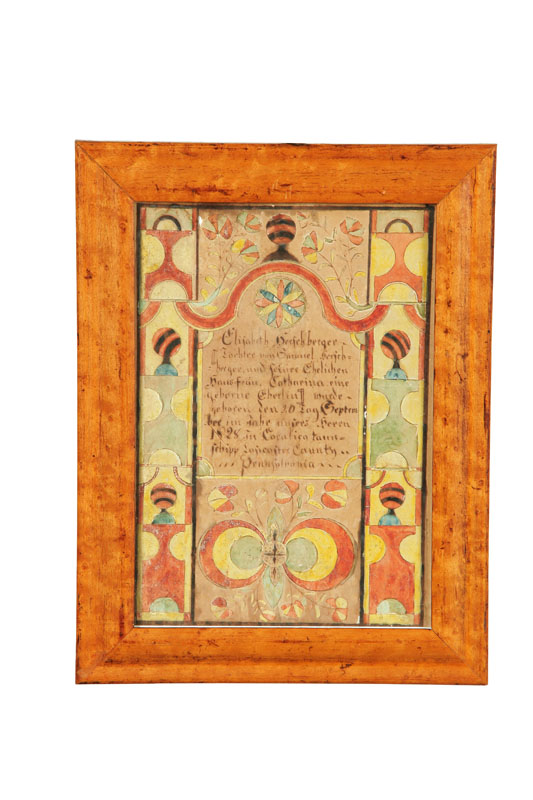 Elisabeth Herschberger
Tochter von Samuel Hersch-
berger, und seiner Ehelichen
Hausfrau, Catharina eine
geborne Eberlin wurde
geboren den 20 Tag Septem
ber im Jahr unsers Heren
1828 in Cocalica taun-
schipp Lancaster County
Pennsylvania